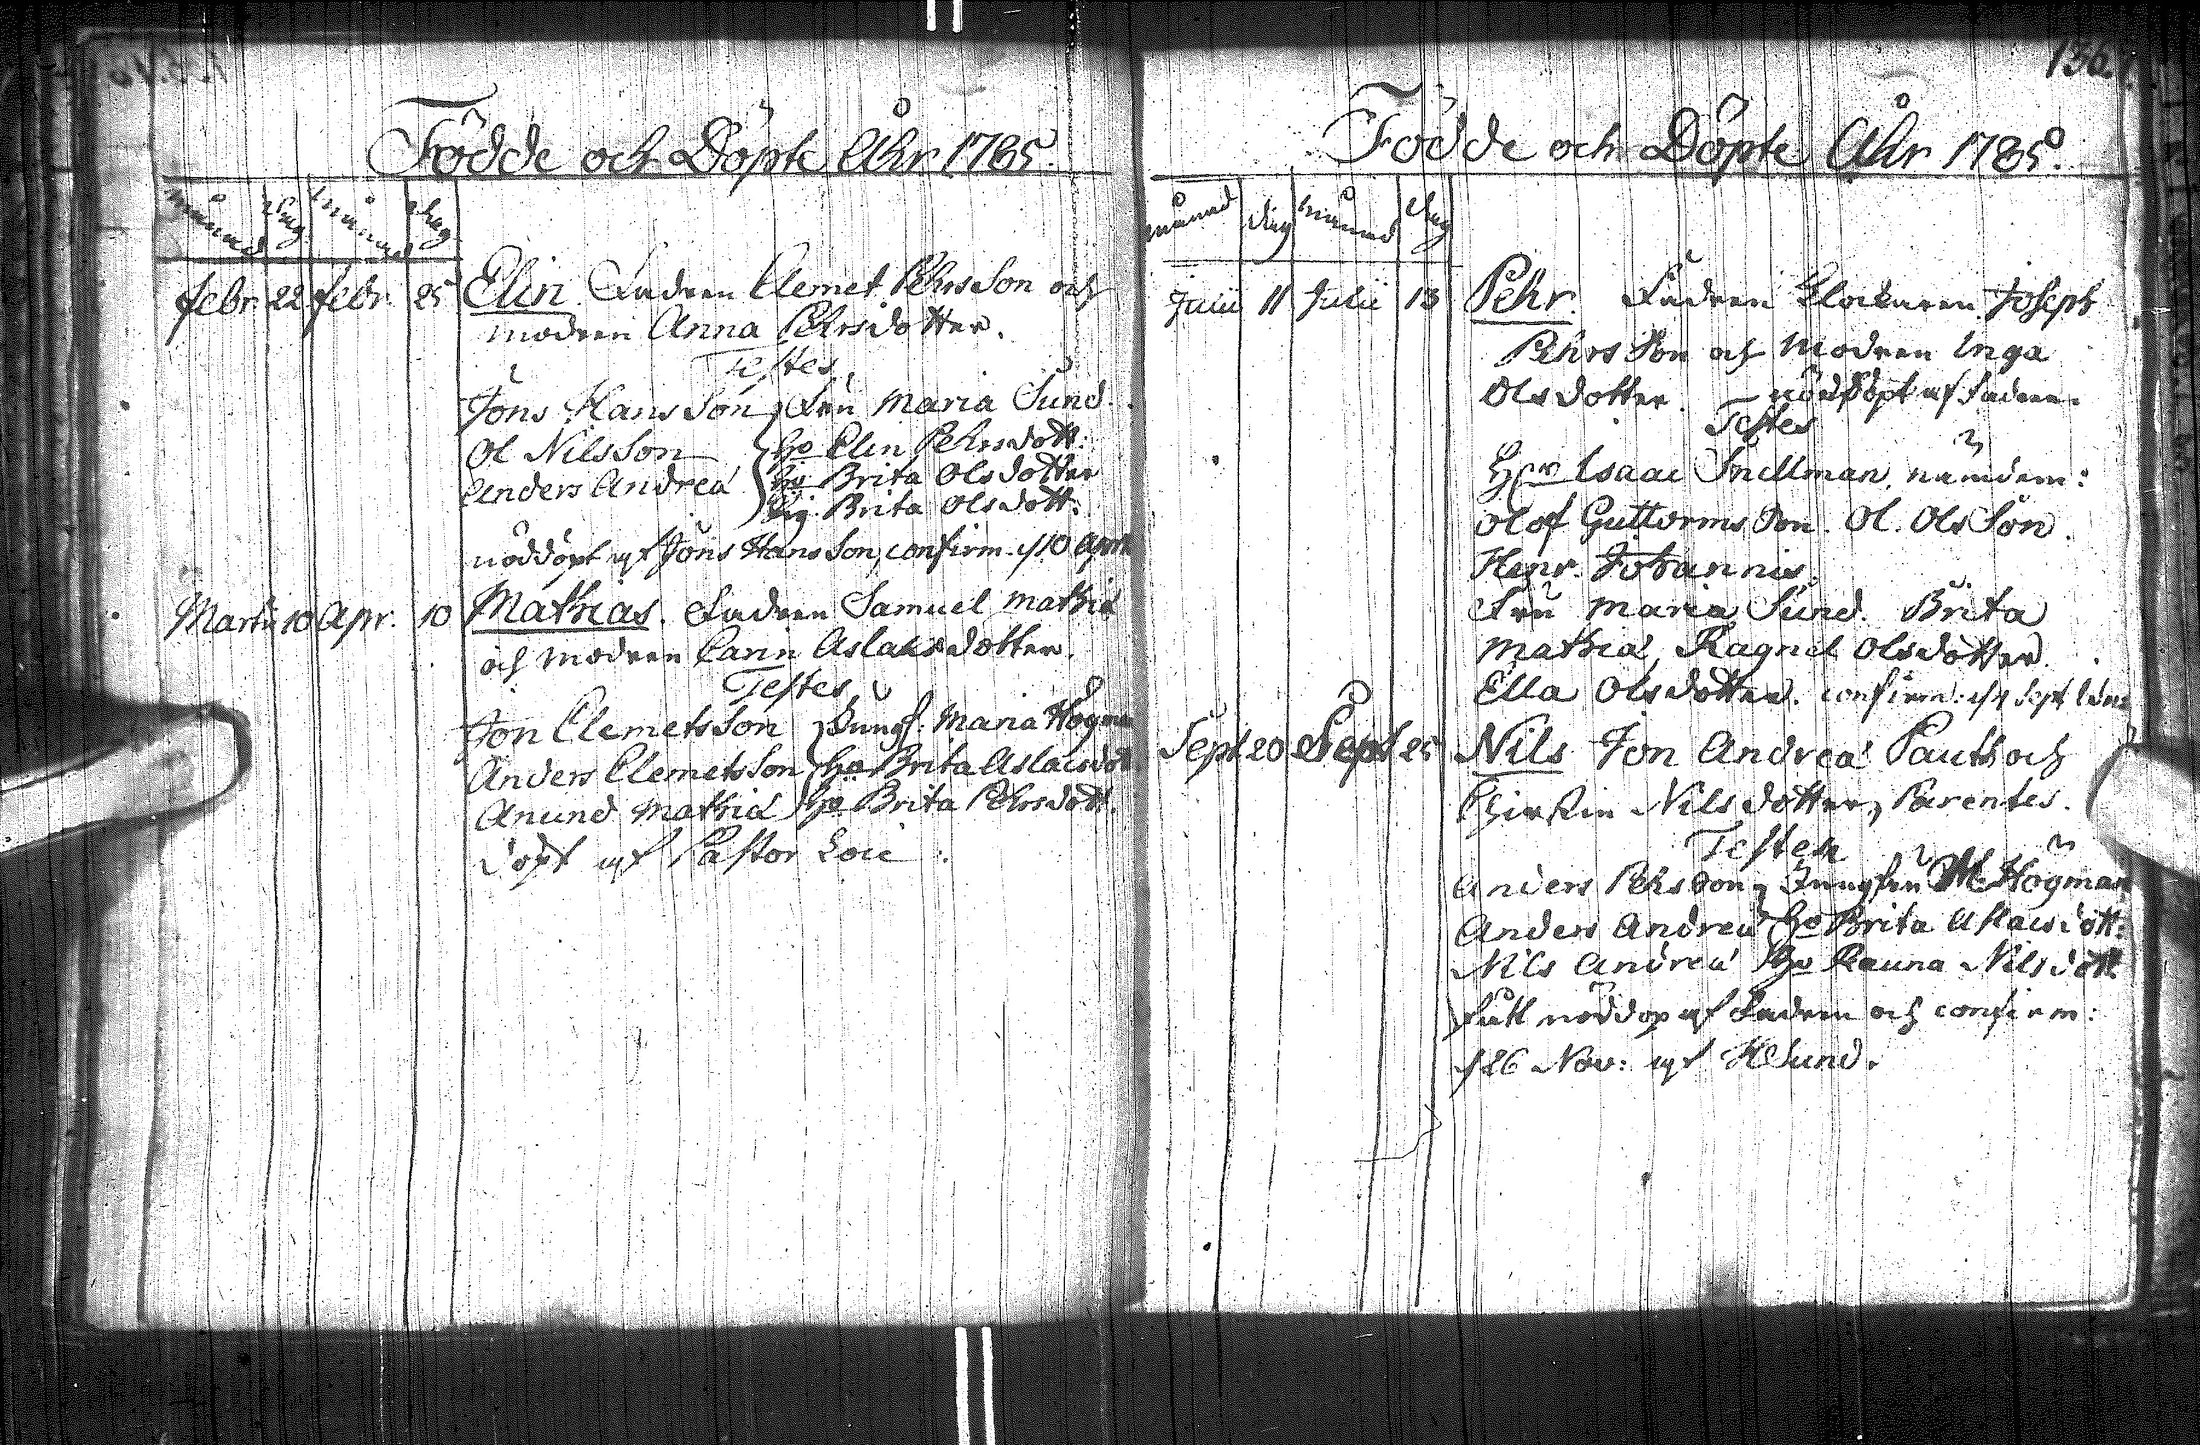 Födde och Döpte Åhr 1785.
månad dag månad dag
febr. 22 febr. 25 Elin. Fadren Clemet PehrsSon och
modren Anna Pehrsdotter.
Testes
Jöns HansSon, Fru Maria Sund.
Ol NilsSon Ho Elin Pehrsdott:
Anders Andreæ Ho Brita Olsdotter
Pig. Brita Olsdott:
nöddöpt af Jöns HansSon, confirm. d 10 April
Martii 10 Apr. 10 Mathias. Fadren Samuel Mathiæ
och modren Carin Aslaksdotter.
Testes
Jon ClemetsSon Jungf. Maria Högman
Anders ClemetsSon Ho Brita Aslacsdott
Anund Mathiæ Ho Brita Pehrsdott.
döpt af Pastor
136.
Födde och Döpte Åhr 1785.
månad dag månad dag
Julii 11 Julii 13 Pehr. Fadren Klockaren Joseph
PehrsSon och Modren Inga
Olsdotter. nöddöpt af Fadren.
Testes
Her Isaac Snellman, nämdem:
Olof GuttormsSon. Ol. OlsSon.
Henr. Johannis.
Fru Maria Sund. Brita
Mathiæ, Ragnil Olsdotter.
Ella Olsdotter. confirm: d 4 Sept.
Sept 20 Sept 25 Nils Jon Andreæ Pauth och
Chirstin Nilsdotter, Parentes.
Testes
Anders PehrsSon, Jungfru M. Högman
Anders Andreæ Ho Brita Aslacsdott:
Nils Andreæ Ho Rauna Nilsdott
fått nöddop af Fadren och confirm:
d 26 Nov: af HSund.